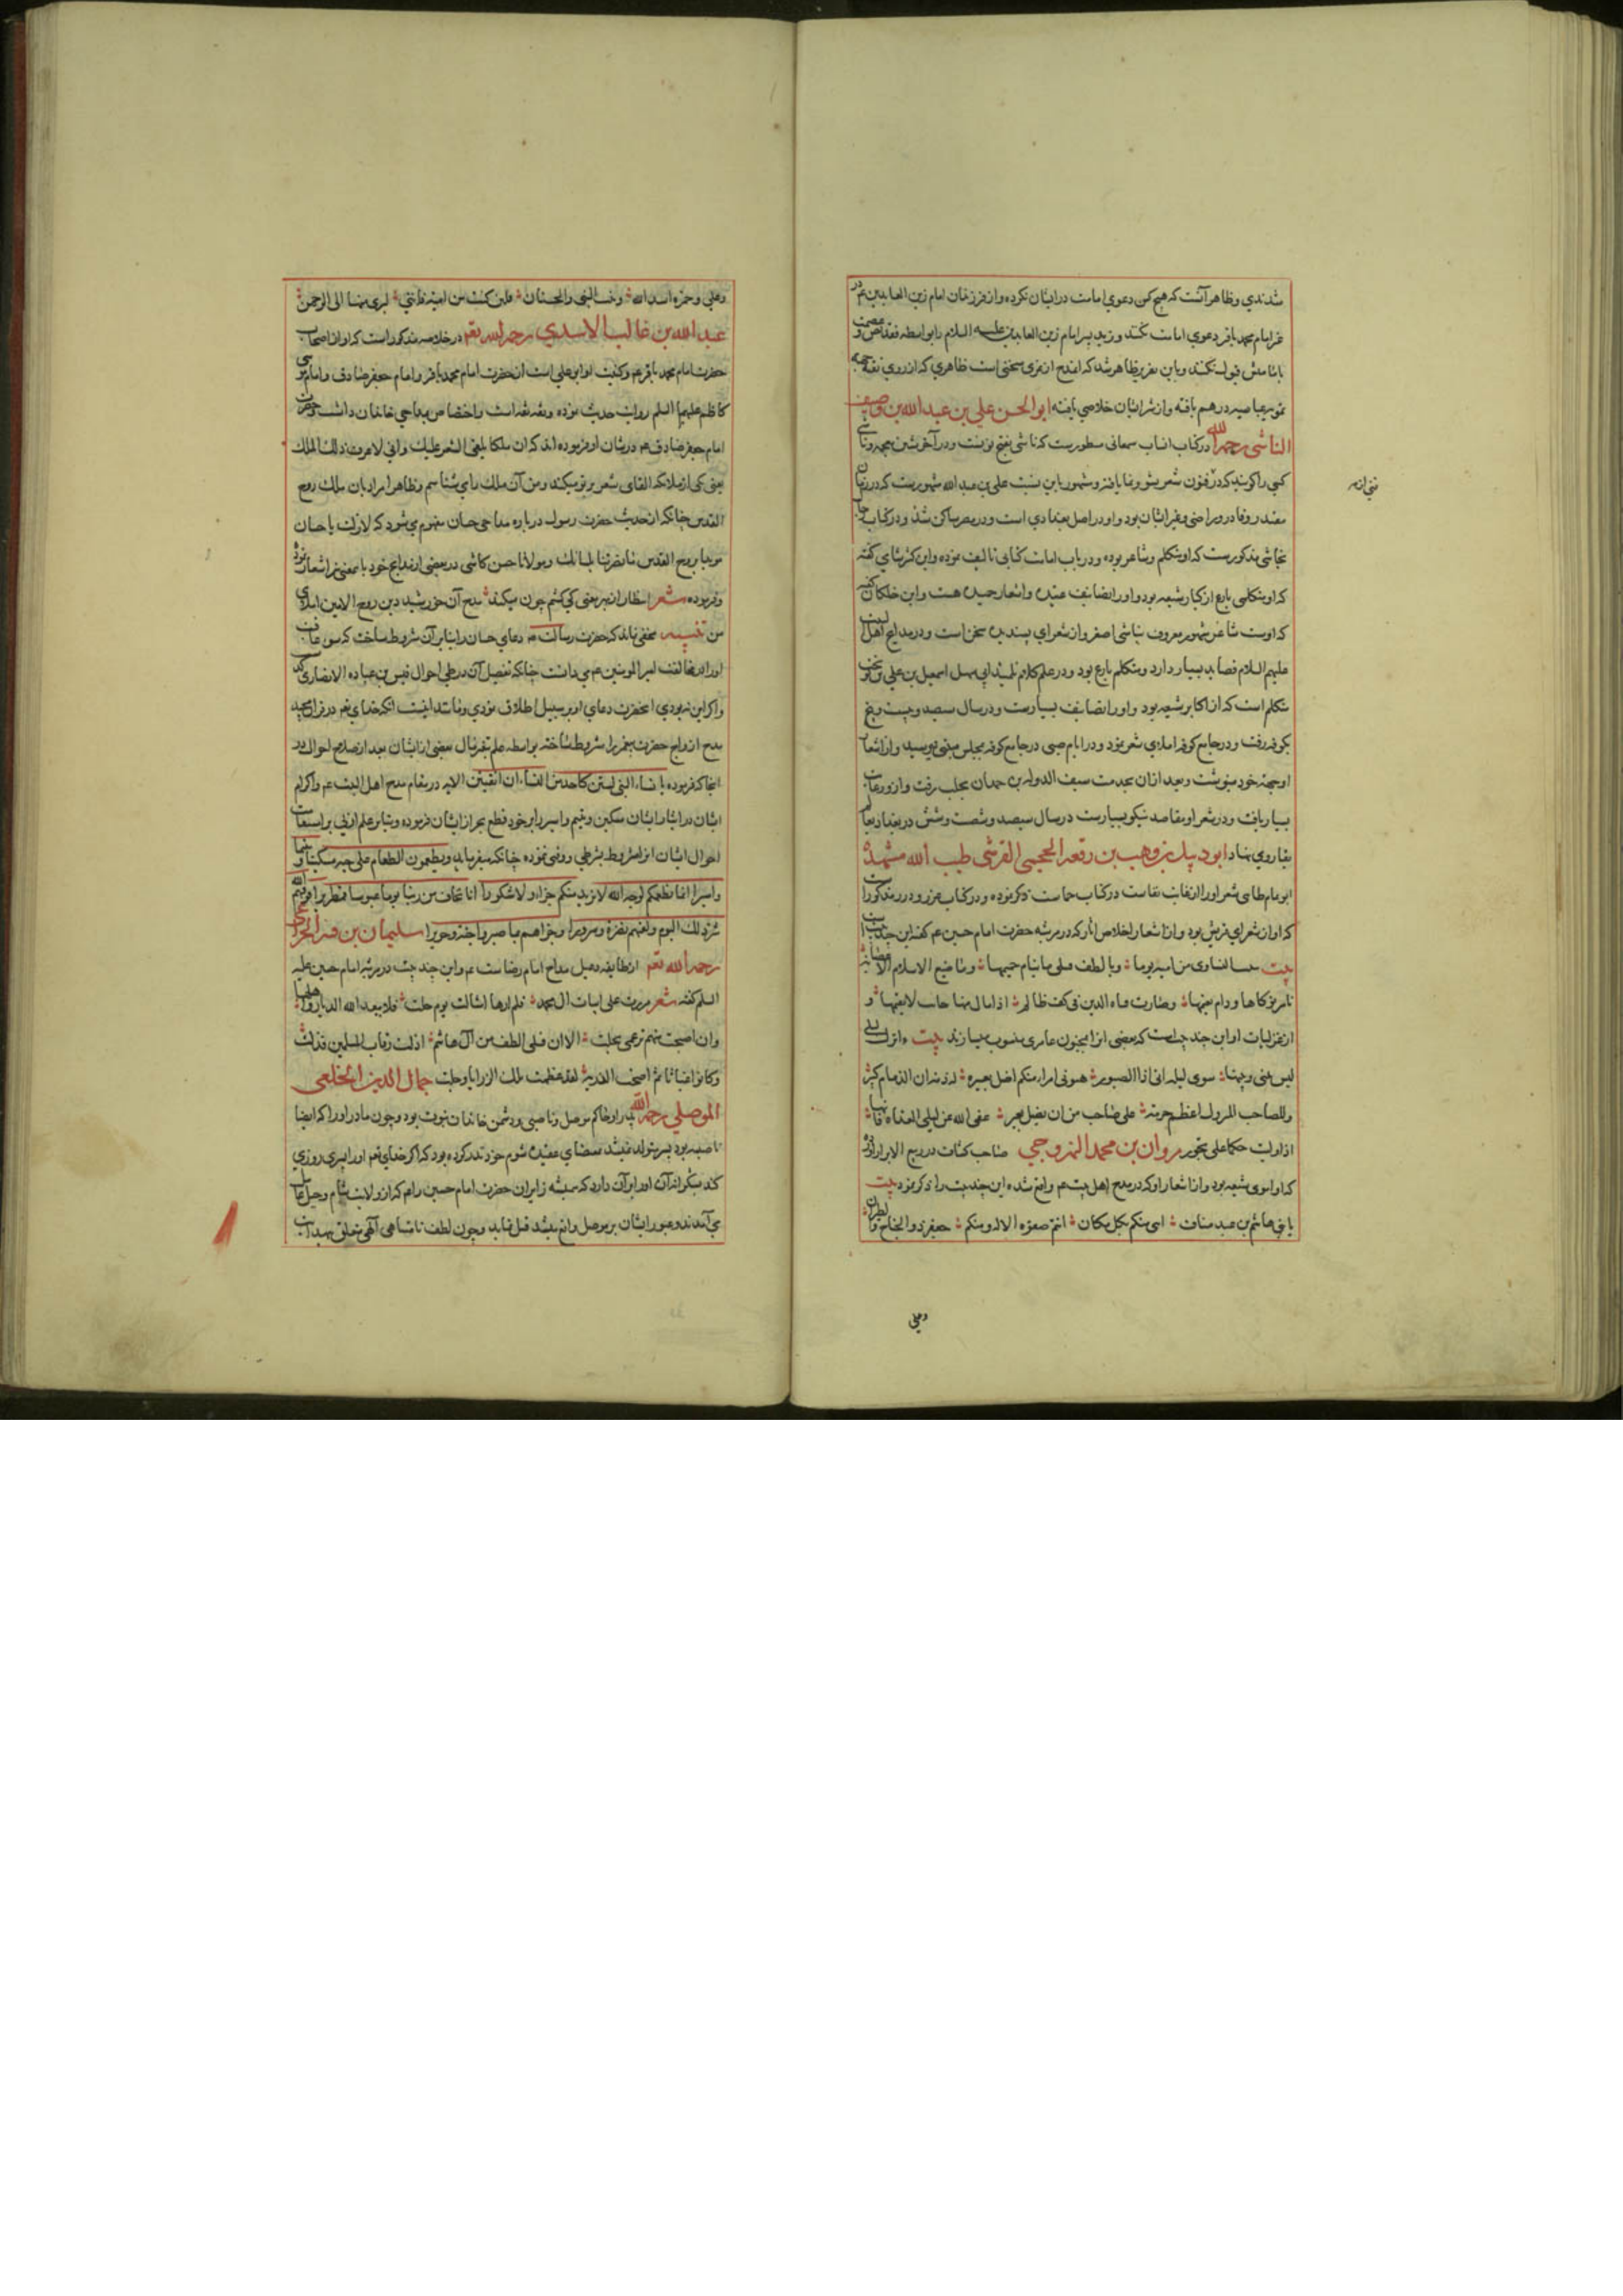 شدندي وظاهر آنست که هیچ کس دعوي امامت در ایشان نکرده و از فرزندان امام زین العابدین عم
غیر امام محمد باقر دعوي امامت نکند و زید پسر امام زین العابدین علیه السلام را بواسطه فقدان نص و عصمت
بامامتش قبول نکنند و باین تقریر ظاهر شد که سخنی است ظاهري که از روي
یافته و از شر ایشان خلاصی یافته ابوالحسن علی بن عبدالله بن وصیف
الناشي رحمه الله در کتاب انساب سمعانی مسطورست که ناشي بفتح نونست و در آخر شین معجمه
کسی را گویند که در فنون شعر نشو و نما یافته و مشهور باین نسبت علی بن عبدالله مشهورست که در زمان
مقتدر و قادر و راضی و غیر ایشان بود و او در اصل بغدادي است و در مصر ساکن شد و در کتاب
نجاشی مذکورست که او متکلم و شاعر بوده و در باب امامت کتابی تالیف نموده و ابن کثیر شامی گفته
که او متکلمی بارع از کبار شیعه بود و او را تصانیف عدیده و اشعار حمیده هست و ابن خلکان گفته
که اوست شاعر مشهور معروف بناشی اصغر و از شعراي پسندیده سخن است و در مدایح اهل بیت
علیهم السلام قصاید بسیار دارد و متکلم بارع بود و در علم کلام تلمیذ ابی سهل اسمعیل بن علی بن نوبخت
متکلم است که از اکابر شیعه بود و او را تصانیف بسیارست و در سال سیصد و بیست و پنج
بکوفه رفت و در جامع کوفه املاي شعر نمود و در ایام صبی در جامع کوفه بمجلس متنبی میرسید و از اشعار
او بجهة خود مینوشت و بعد از آن بخدمت سیف الدوله بن حمدان بحلب رفت و از و رعایت
بسیار یافت و در شعر او مقاصد نیکو بسیارست در سال سیصد و شصت و شش در بغداد
بقا روي نهاد ابو دهبل بن وهب بن رفعه الجمحی القرشی طیب الله مشهده
ابو تمام طائي شعر او را در کتاب حماست ذکر نموده و در کتاب غرر و درر مذکور است
که او از شعراي قریش بود و از اشعار اخلاص آثار که در مرثیه حضرت امام حسین عم گفته این چند بیت
بیت من امیه نوما و بالطف قتلی ما ینام حمیمها وما ضیع الاسلام الا عصابة
تامر نوکاها ودام نعیمها وصارت قناة الدین فی کف ظالم اذا مال منها جانب لا یقیمها و
از غزلیات او این چند بیت است که بعضی آنرا بمجنون عامري منسوب میسازند بیت
لیس بینی و بینها سوی لیله انی اذا الصبور هبونی امرا منکم اضل بعیره له ذمه ان الذمام کبیر
وللصاحب المتروک اعظم حرمة علی صاحب من ان یضل بعیر عفی الله عن لیلی الغداة فانها
اذا ولیت حکما علی تجور مروان بن محمد السروجي صاحب کشاف در ربیع الابرار آورده
که او اموي شیعه بود و از اشعار او که در مدح اهل بیت عم واقع شده این چند بیت را ذکر نموده بیت
یا بنی هاشم بن عبد مناف اننی منکم بکل مکان انتم صفوة الاله ومنکم جعفر ذوالجناح والطیران
وعلي
وعلي وحمزه اسد الله وبنت النبی والحسنان فلئن کنت من امیه فانی لبری منها الی الرحمن
عبد الله بن غالب الاسدي رحمه الله تعم در خلاصه مذکور است که او از اصحاب
حضرت امام محمد باقر عم و کنیت او ابو علی است از حضرت امام محمد باقر و امام جعفر صادق و امام موسی
کاظم علیهم السلم روایت حدیث نموده و ثقه است و اختصاص بمداحی خاندان داشت و حضرت
امام جعفر صادق عم در شان او فرموده اند که ان ملکا یلقی الشعر علیک وانی لاعرف ذلک الملک
یعنی یکی از ملائکه القاي شعر بر تو میکند و من آن ملک را می شناسم و ظاهرا مراد بان ملک روح
القدس چنانکه از حدیث حضرت رسول در باره مداحی حسان مفهوم می شود که لازلت یا حسان
مویدا بروح القدس ما نصرتنا بلسانک و مولانا حسن کاشی در بعضی از مدایح خود باین معنی نیز اشعار نموده
و فرموده شعر انتظار از بهر معنی کی کشم چون میکند مدح آن خورشید دین روح الامین املای
من تنبیه مخفی نماند که حضرت رسالت دعاي حسان را بنا بر آن مشروط ساخت که
او را در مخالفت امیر المومنین عم می دانست چنانکه تفصیل آن در طی احوال قیس بن عباده الانصاری
و اگر این نبودي آنحضرت دعاي او بر سبیل اطلاق نمودي و مانند اینست آنکه خداي تعم در قران مجید
مدح ازواج حضرت پیغمبر را مشروط ساخته بواسطه علم بعضی از ایشان بعد از صلاح احوال در
آنجا که فرموده یا نساء النبی لستن کاحد من النساء ان اتقیتن الایه در مقام مدح اهل البیت عم و اکرام
ایشان در ایثار ایشان مسکین و یتیم و اسیر را بر خود قطع ایشان فرموده و بنا بر علم ازلی بر استقامت
احوال ایشان انرا مشروط بشرطی نموده چنانکه میفرماید ویطعمون الطعام علی حبه مسکینا ویتیما
واسیرا انما نطعمکم لوجه الله لا نرید منکم جزاء ولا شکورا انا نخاف من ربنا یوما عبوسا قمطریرا فوقیهم الله
شر ذلک الیوم ولقیهم نضرة وسرورا وجزاهم بما صبروا جنة وحریرا سلیمان بن
رحمه الله تعم از طایفه دعبل مداح امام رضاست عم و این چند بیت در مرثیه امام حسین علیه
السلم گفته شعر مررت علی ابیات ال محمد فلم ارها امثالها یوم حلت فلا یبعد الله الدیار واهلها
وان اصبحت منهم برغمی تخلت الا ان قتلی الطف من آل هاشم اذلت رقاب المسلمین فذلت
وکانوا غیاثا ثم اضحوا رزیة لقد عظمت تلک الرزایا وجلت جمال الدین الخلعی
الموصلي رحمه الله پدر او حاکم موصل و ناصبی و دشمن خاندان نبوت بود و چون مادر او را که ایضا
ناصبه بود پسر متولد نمیشد بمقتضاي عقیده شوم خود نذر کرده بود که اگر خداي تعم او را پسری روزي
کند بشکرانه آن او را بر آن دارد که همیشه زایران حضرت امام حسین را عم که از ولایت شام و جبل عامل
می آمدند و عبور ایشان بر موصل واقع میشد قتل نماید و چون لطف نامتناهی الهی متعلق بهدایت